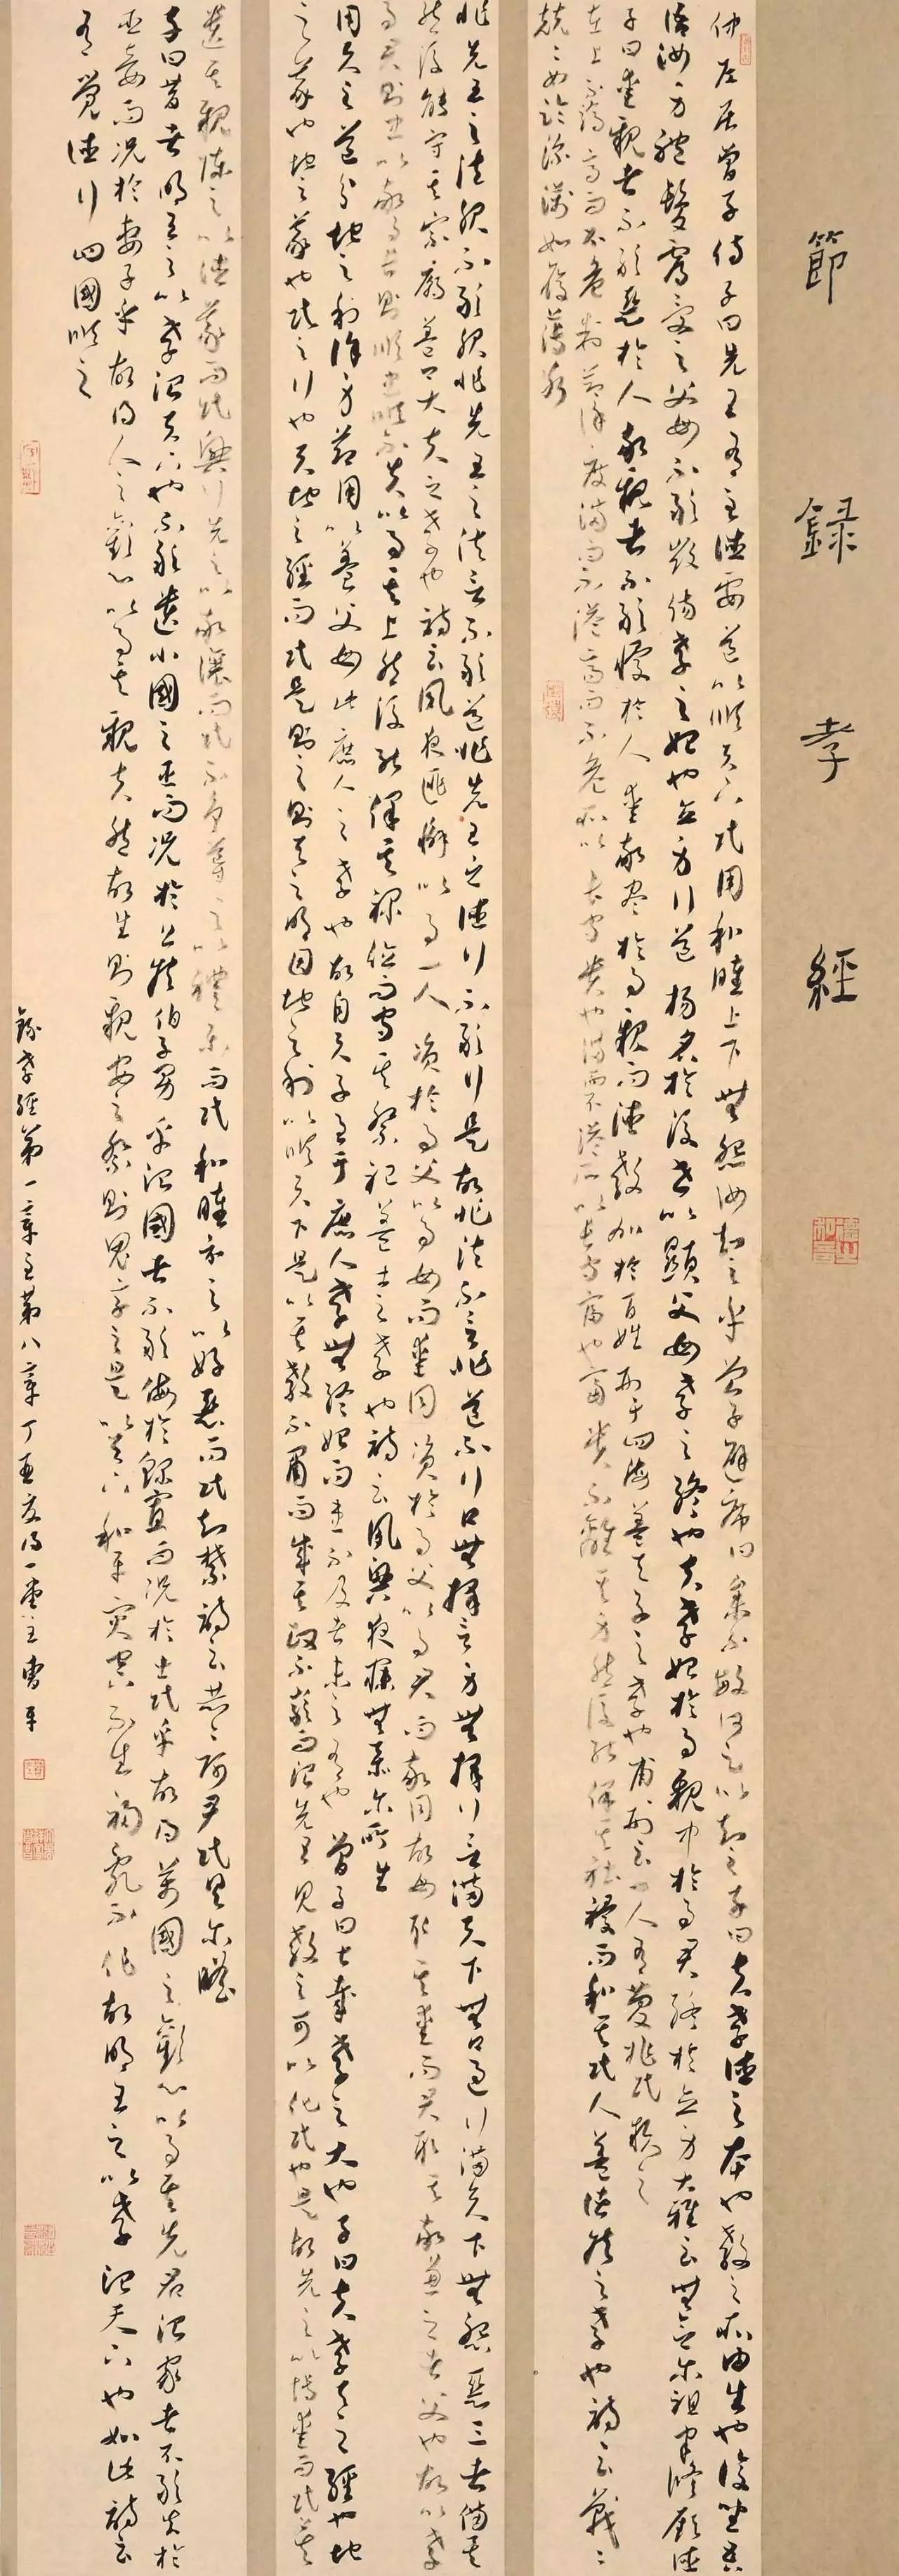 節錄孝經
仲尼居曾子侍子曰先王有至德要道以順天下民用和睦上下無怨汝知之乎曾子避席曰參不敏何足以知之子曰夫孝德之本也教之所由生也復坐吾
語汝身體髮膚受之父母不敢毀傷孝之始也立身行道揚名於後世以顯父母孝之終也夫孝始於事親中於事君終於立身大雅云無念爾祖聿脩厥德
子曰愛親者不敢惡於人敬親者不敢慢於人愛敬盡於事親而德教加於百姓刑于四海蓋天子之孝也甫刑云一人有慶兆民賴之
在上不驕高而不危制節謹度滿而不溢高而不危所以長守貴也滿而不溢所以長守富也富貴不離其身然後能保其社稷而和其民人蓋諸侯之孝也詩云戰戰
兢兢如臨深淵如履薄冰
非先王之法服不敢服非先王之法言不敢道非先王之德行不敢行是故非法不言非道不行口無擇言身無擇行言滿天下無口過行滿天下無怨惡三者備矣
然後能守其宗廟蓋卿大夫之孝也詩云夙夜匪懈以事一人資於事父以事母而愛同資於事父以事君而敬同故母取其愛而君取其敬兼之者父也故以孝
事君則忠以敬事長則順忠順不失以事其上然後能保其祿位而守其祭祀蓋士之孝也詩云夙興夜寐無忝爾所生
用天之道分地之利謹身節用以養父母此庶人之孝也故自天子至于庶人孝無終始而患不及者未之有也曾子曰甚哉孝之大也子曰夫孝天之經也地
之義也民之行也天地之經而民是則之則天之明因地之利以順天下是以其教不肅而成其政不嚴而治先王見教之可以化民也是故先之以博愛而民莫
遺其親陳之以德義而民興行先之以敬讓而民不爭導之以禮樂而民和睦示之以好惡而民知禁詩云赫赫師尹民具爾瞻
子曰昔者明王之以孝治天下也不敢遺小國之臣而況於公侯伯子男乎治國者不敢侮於鰥寡而況於士民乎故得萬國之歡心以事其先君治家者不敢失於
臣妾而況於妻子乎故得人之歡心以事其親夫然故生則親安之祭則鬼享之是以天下和平災害不生禍亂不作故明王之以孝治天下也如此詩云
有覺德行四國順之
錄孝經第一章至第八章丁酉